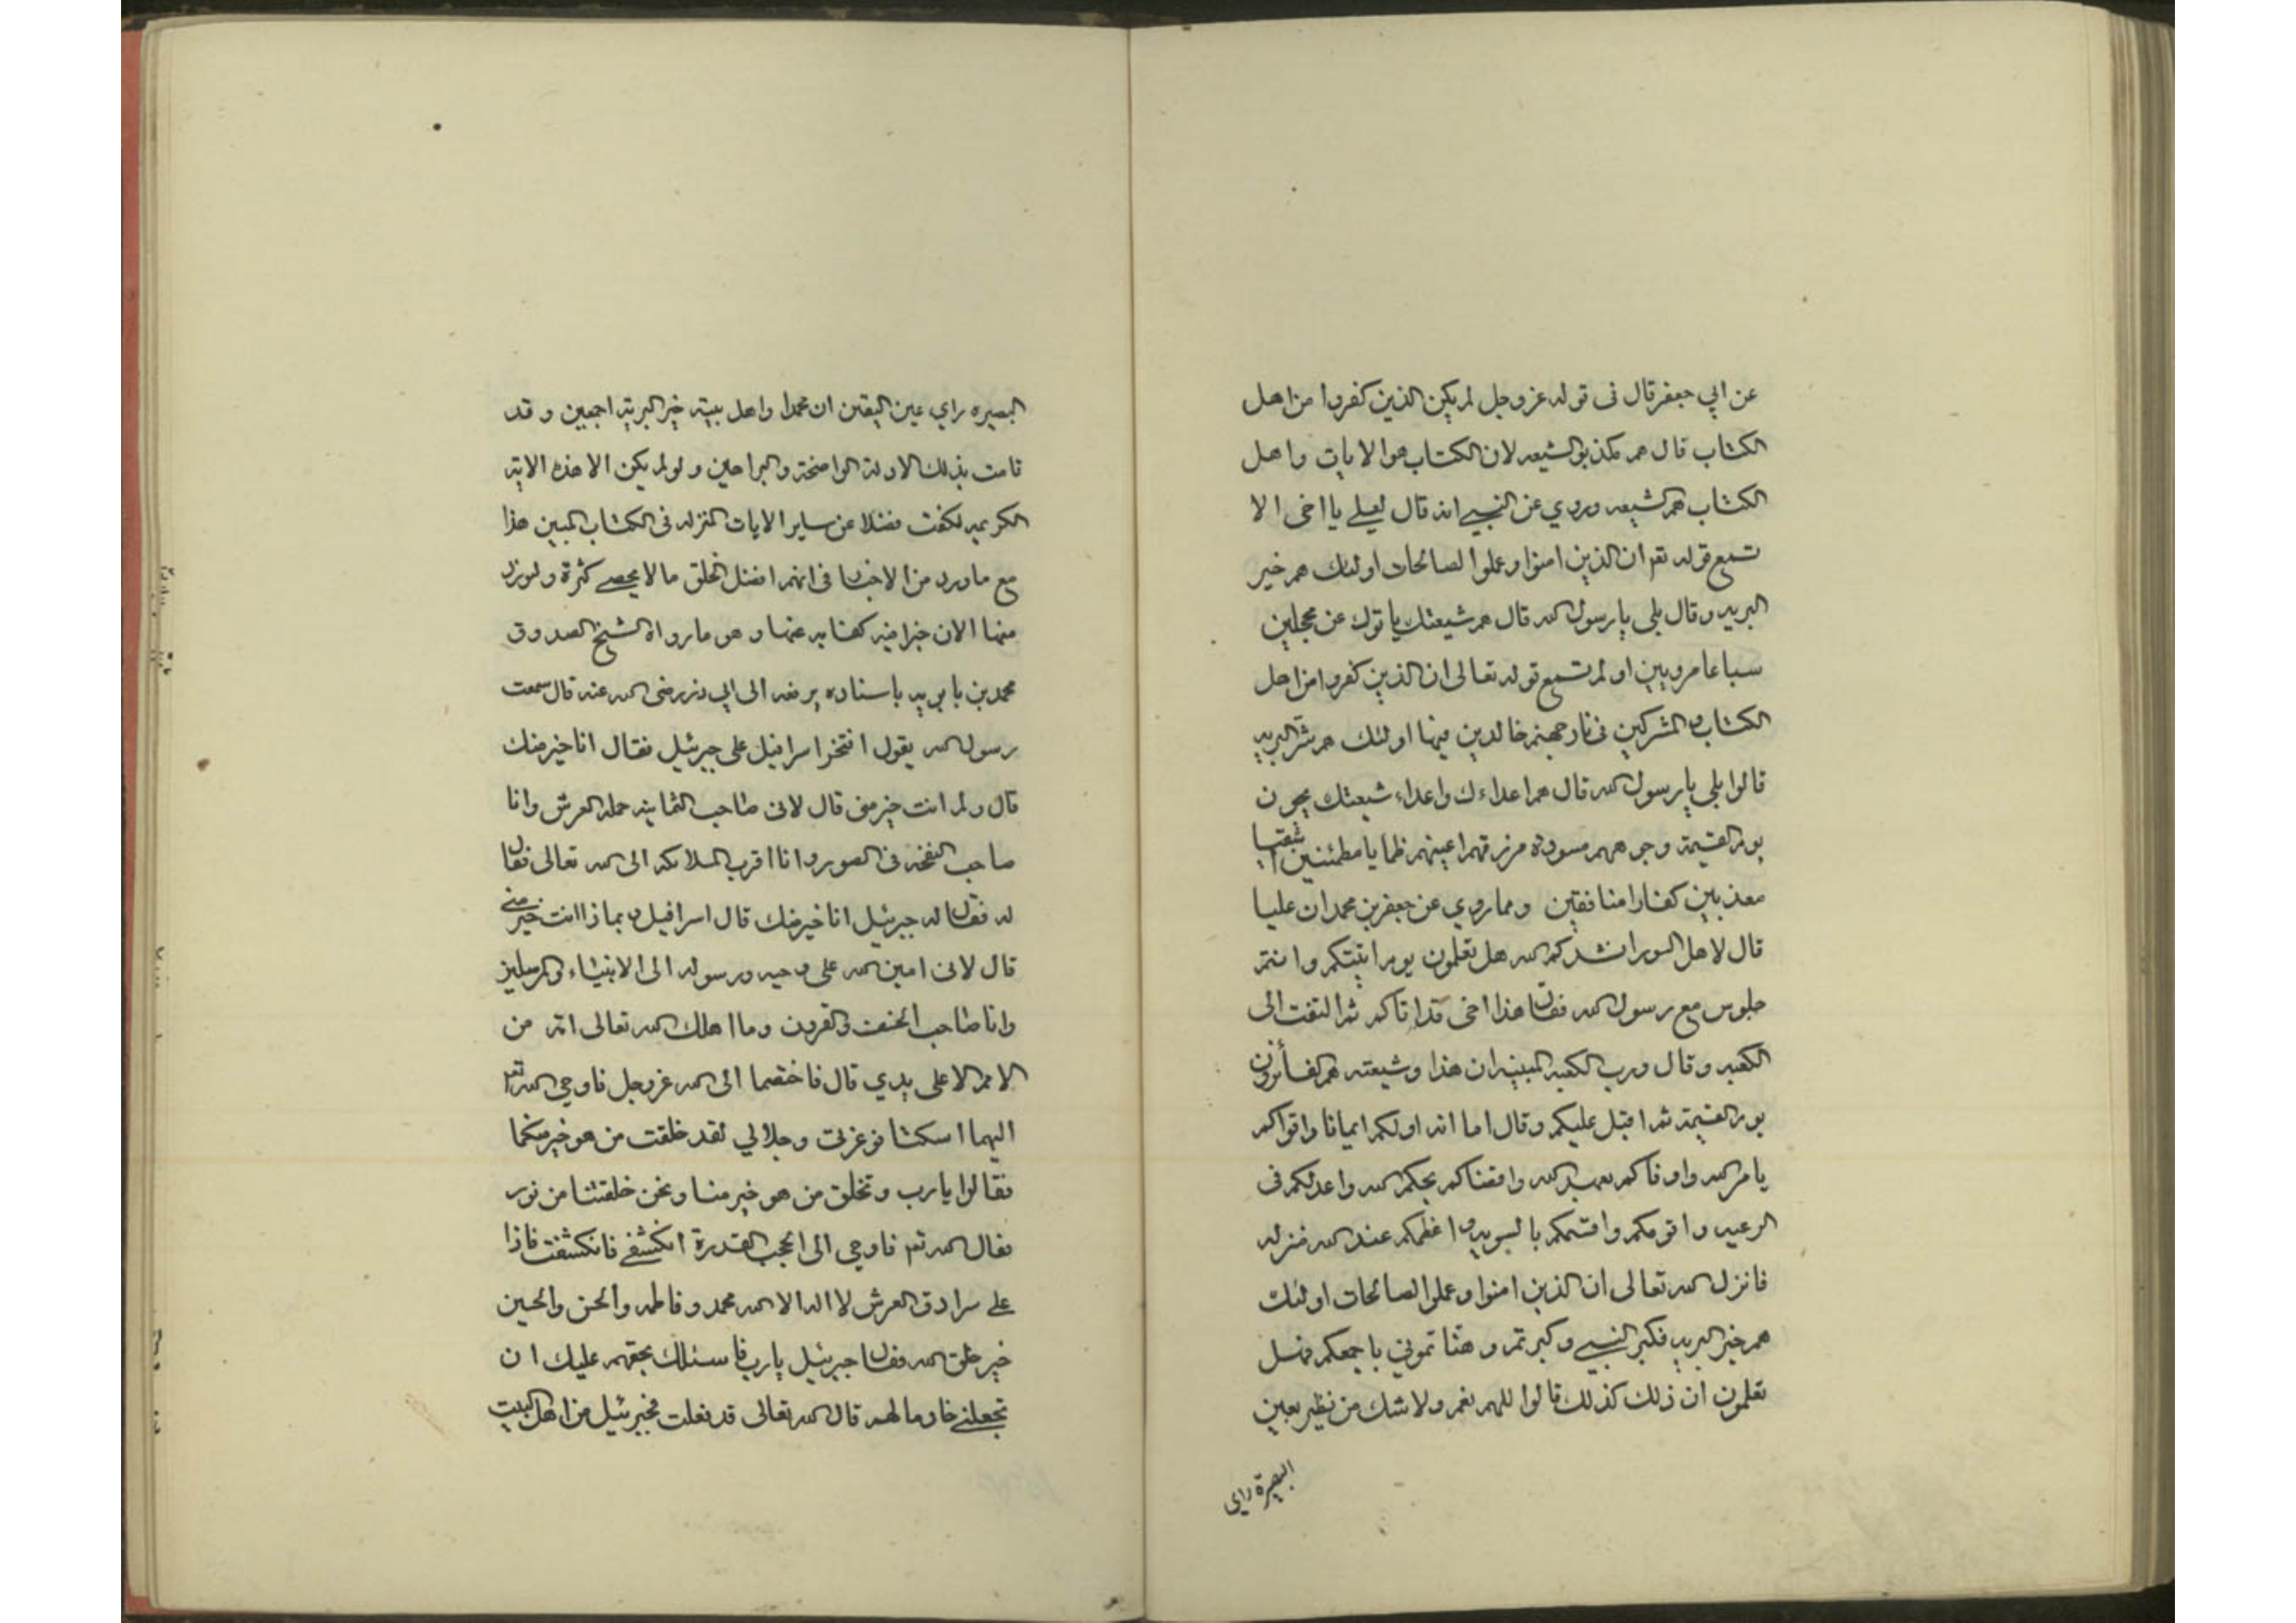 عن ابي جعفر قال فى قوله عز وجل لم يكن الذين كفروا من اهل
الكتاب قال هم مكذبو الشيعه لان الكتاب هو الايات واهل
الكتاب هم الشيعه وروي عن النبي انه قال لعلي يا اخى الا
تسمع قوله تعم ان الذين امنوا وعملوا الصالحات اولئك هم خير
البريه وقال بلى يا رسول الله قال هم شيعتك ياتوك غر محجلين
سباعا مرويين او لم تسمع قوله تعالى ان الذين كفروا من اهل
الكتاب والمشركين فى نار جهنم خالدين فيها اولئك هم شر البريه
قالوا بلى يا رسول الله قال هم اعداءك واعداء شيعتك يجون
يوم القيمة وجوههم مسودة مزرقهم اعينهم ظمايا مطمئنين اشقيا
معذبين كفارا منافقين ومما روي عن جعفر بن محمد ان عليا
قال لاهل السورا انشدكم الله هل تعلمون يوم اتيتكم وانتم
جلوس مع رسول الله فقال هذا اخى قد اتاكم ثم التفت الى
الكعبه وقال ورب الكعبه المبنيه ان هذا وشيعته هم الفائزون
يوم القيمة ثم اقبل عليكم وقال اما انه اولكم ايمانا واقواكم
يامر الله واوفاكم بعهد الله واقضاكم بحكم الله واعدلكم فى
الرعيه واقومكم واقسمكم بالسويه واعظمكم عند الله منزله
فانزل الله تعالى ان الذين امنوا وعملوا الصالحات اولئك
هم خير البريه فكبر النبي وكبرتم وهنا تمونى باجمعكم فهل
تعلمون ان ذلك كذلك قالوا اللهم نعم ولا شك من نظر بعين
البصيرة راى
البصيره راي عين اليقين ان محمدا واهل بيته خير البرية اجمعين وقد
قامت بذلك الادلة الواضحة والبراهين ولو لم يكن الا هذه الاية
الكريمه لكفت فضلا عن ساير الايات المنزله فى الكتاب المبين هذا
مع ماورد من الاخبار فى انهم افضل الخلق ما لا يحصى كثرة ولنورد
منها الان خبرا فيه كفايه عنها وهو ما رواه الشيخ الصدوق
محمد بن بابويه باسناده يرفعه الى ابي ذر رضى الله عنه قال سمعت
رسول الله يقول افتخر اسرافيل على جبرئيل فقال انا خير منك
قال ولم انت خير منى قال لانى صاحب الثمانيه حمله العرش وانا
صاحب النفخه فى الصور وانا اقرب الملائكه الى الله تعالى فقال
له فقال له جبرئيل انا خير منك قال اسرافيل وبماذا انت خير مني
قال لانى امين الله على وحيه ورسوله الى الانبياء والمرسلين
وانا صاحب الخسف والقرون وما اهلك الله تعالى امه من
الامم الا على يدي قال فاختصما الى الله عز وجل فاوحي الله تعم
اليهما اسكتا فوعزتى وجلالي لقد خلقت من هو خير منكما
فقالوا يا رب وتخلق من هو خير منا ونحن خلقتنا من نور
فقال الله تعم فاوحي الى الحجب القدرة انكشفي فانكشفت فاذا
على سرادق العرش لا اله الا الله محمد وفاطمه والحسن والحسين
خير خلق الله فقال جبرئيل يا رب فاسئلك بحقهم عليك ان
تجعلنى خادما لهم قال الله تعالى قد فعلت فجبرئيل من اهل البيت